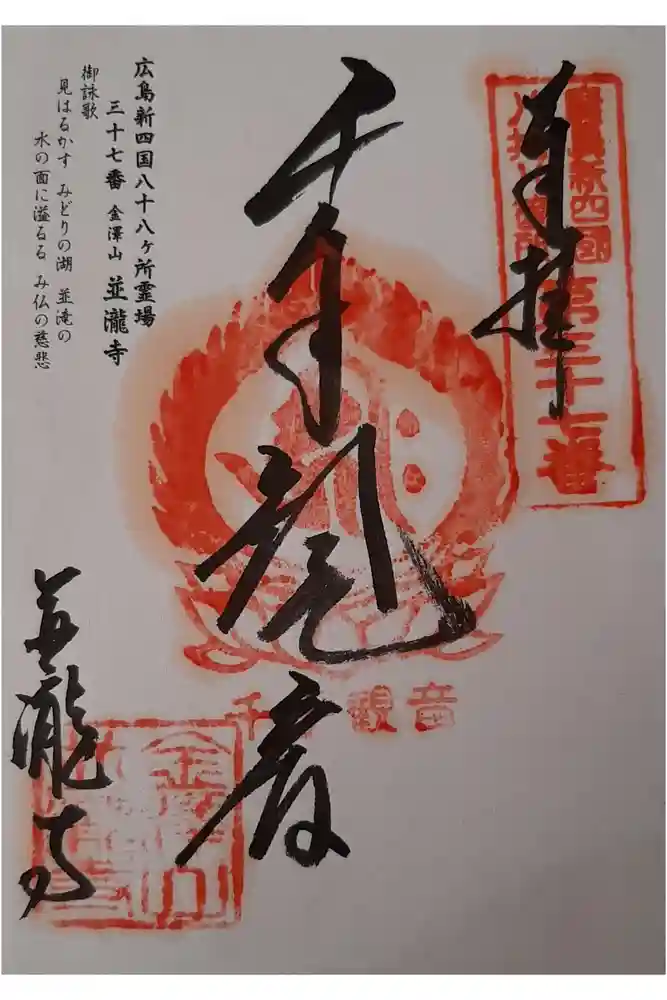 奉拝
廣島新四國
八十八ヶ所
第三十七番
千手観音
千手観音
広島新四国八十八ヶ所霊場
三十七番 金澤山 並瀧寺
御詠歌
見はるかす みどりの湖 並滝の
水の面に溢るる み仏の慈悲
並瀧寺